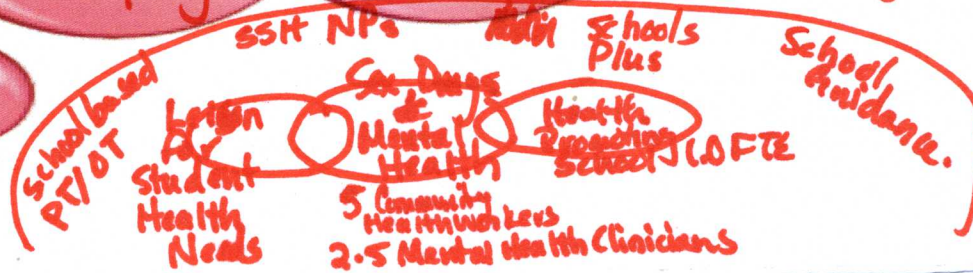 SSH NPs
Schools
Plus
School
Guidance.
School based
PT/OT
Liason
For
Student
Health
Needs
Sex Drugs
&
Mental
Health
5 Community
Health Workers
2.5 Mental Health Clinicians
Health
Promoting
School 1.0 FTE